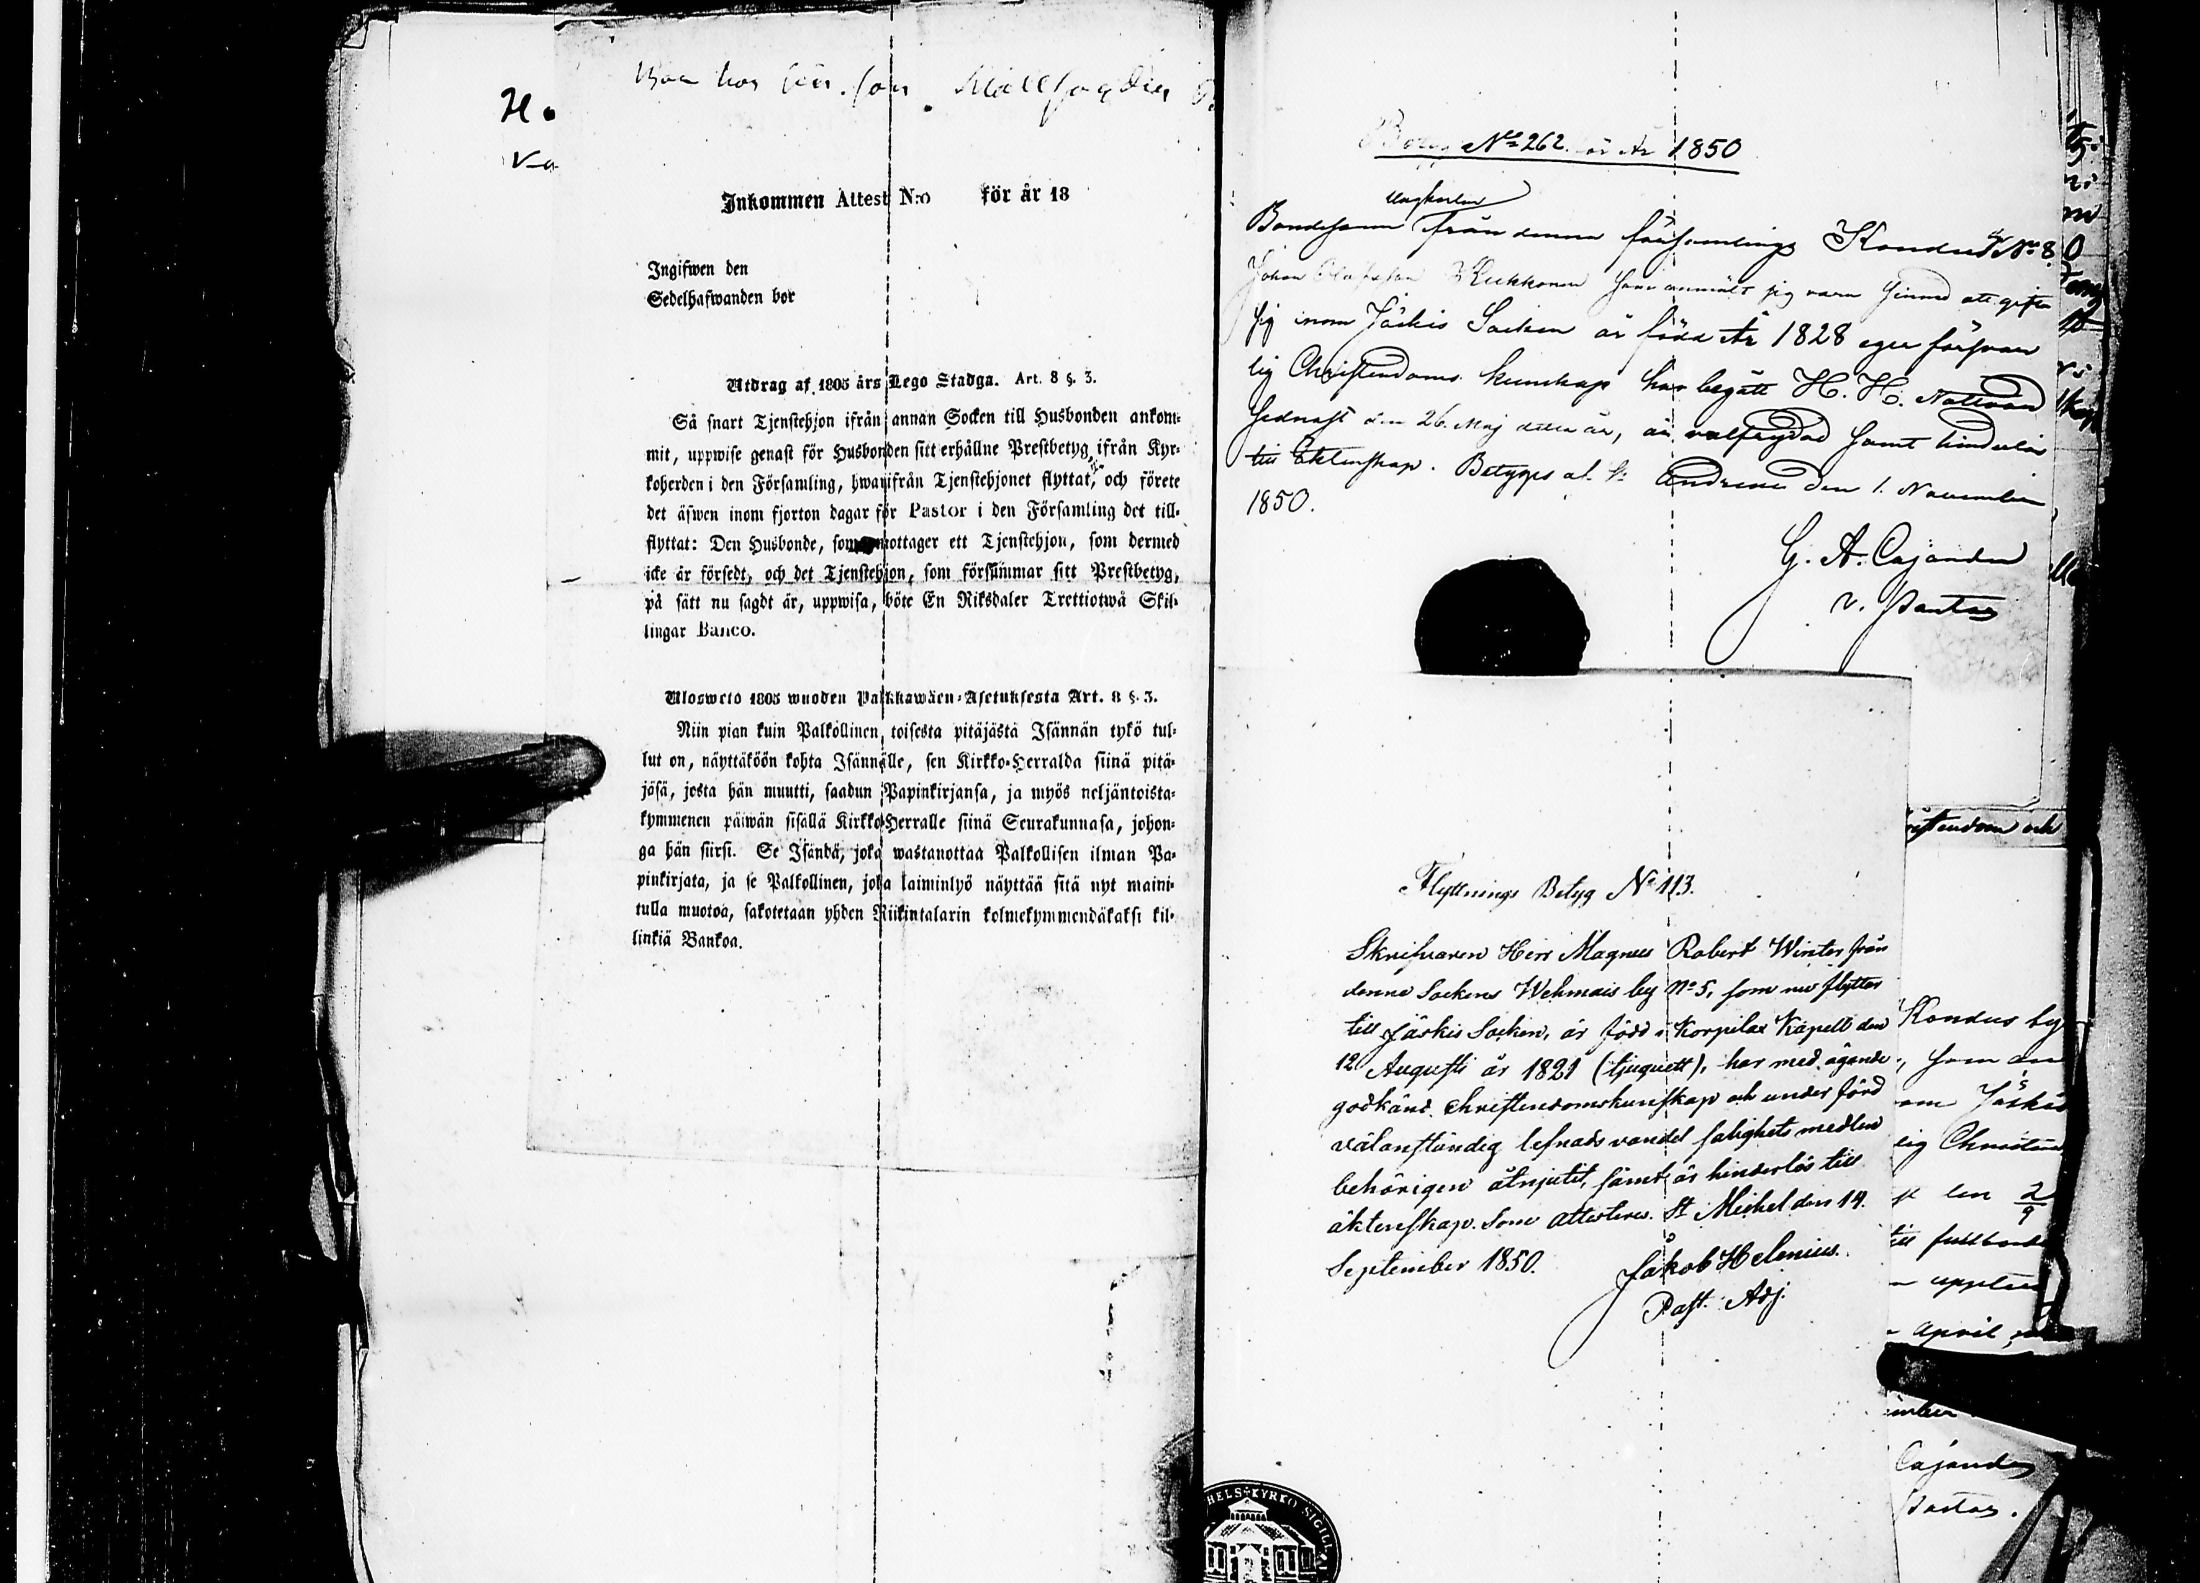 Bor hos sin son
Inkommen Attest N:o för år 18
Ingifwen den
Sedelhafwanden bor
Utdrag af 1805 års Lego Stadga. Art. 8 §. 3.
Så snart Tjenstehjon ifrån annan Socken till Husbonden ankom-
mit, uppwise genast för Husbonden sitt erhållne Prestbetyg ifrån Kyr-
koherden i den Församling, hwarifrån Tjenstehjonet flyttat, och förete
det äfwen inom fjorton dagar för Pastor i den Församling det till-
flyttat: Den Husbonde, som emottager ett Tjenstehjon, som dermed
icke är försedt, och det Tjenstehjon, som försummar sitt Prestbetyg,
på sätt nu sagdt är, uppwisa, böte En Riksdaler Trettiotwå Skil-
lingar Banco.
Ulosweto 1805 wuoden Palkkawäen-Asetuksesta Art. 8 §. 3.
Niin pian kuin Palkollinen toisesta pitäjästä Isännän tykö tul-
lut on, näyttäköön kohta Isännälle, sen Kirkko-Herralda siinä pitä-
jäsä, josta hän muutti, saadun Papinkirjansa, ja myös neljäntoista-
kymmenen päiwän sisällä Kirkko-Herralle siinä Seurakunnasa, johon-
ga hän siirsi. Se Isändä, joka wastanottaa Palkollisen ilman Pa-
pinkirjata, ja se Palkollinen, joka laiminlyö näyttää sitä nyt maini-
tulla muotoa, sakotetaan yhden Riikintalarin kolmekymmendäkaksi kil-
linkiä Bankoa.
Betyg No 262 1850
ungkarlen
Bondesonen från denna församlings Kondus No 8
Johan Olofsson Kukkonen som anmält sig vara sinnad att gifta
sig inom Jäskis Socken är född År 1828 eger försvar
lig Christendoms kunskap har begått H. H. Nattvard
sednast den 26 Maj detta år, är välfrejdad samt hinderlös
till Ektenskap. Betygas af St Andreae den 1. November
1850.
G. A. Cajander
v. Pastor
Flyttnings Betyg No 113.
Skrifvaren Herr Magnus Robert Winter från
denna Sockens Wehmais by No 5, som nu flyttar
till Jäskis Socken, är född i Korpilax Kapell den
12 Augusti år 1821 (tjuguett), har med ägande
godkänd christendomskunskap och under förd
välanständig lefnadsvandel salighets medlen
behörigen åtnjutit, samt är hinderlös till
äktenskap. Som attesteras. St Michel den 14.
September 1850.
Jakob Helenius.
Past. Adj.
Kondus by
som an
Jäskis
lig Christen
2/9
till
april
Cajander
Pastor.
HELS KYRKO SIGILL